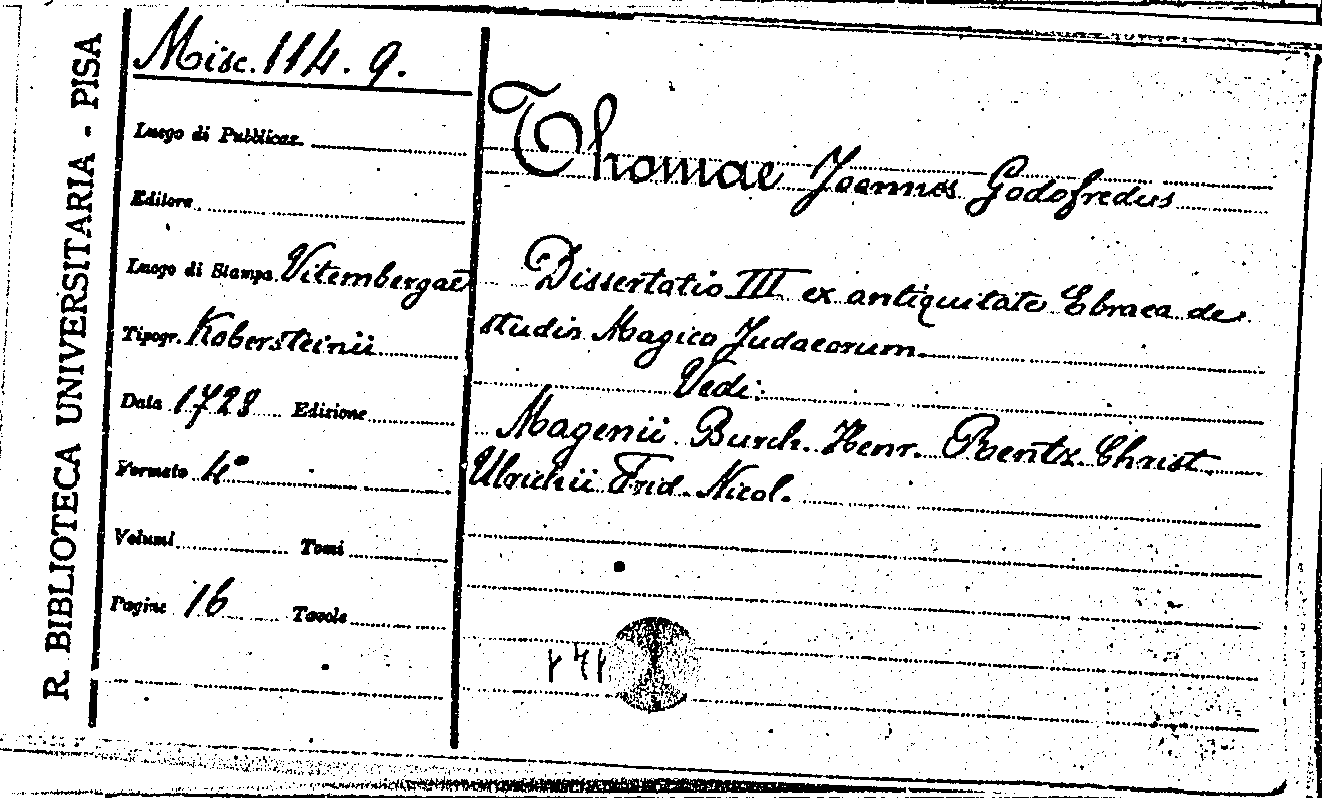 R. BIBLIOTECA UNIVERSITARIA - PISA
Misc. 114. 9.
Luogo di Pubblicaz.
Editore
Luogo di Stampa Vitembergae
Tipogr. Kobersteinii
Data 1728 Edizione
Formato 4°
Volumi Tomi
Pagine 16 Tavole
Thomae Joannes Godofredus
Dissertatio III ex antiquitate Ebraea de
studin Magico Judaeorum.
Vedi:
Magenii Burch. Henr. Rentz Christ.
Ulrichii Frid. Nicol.